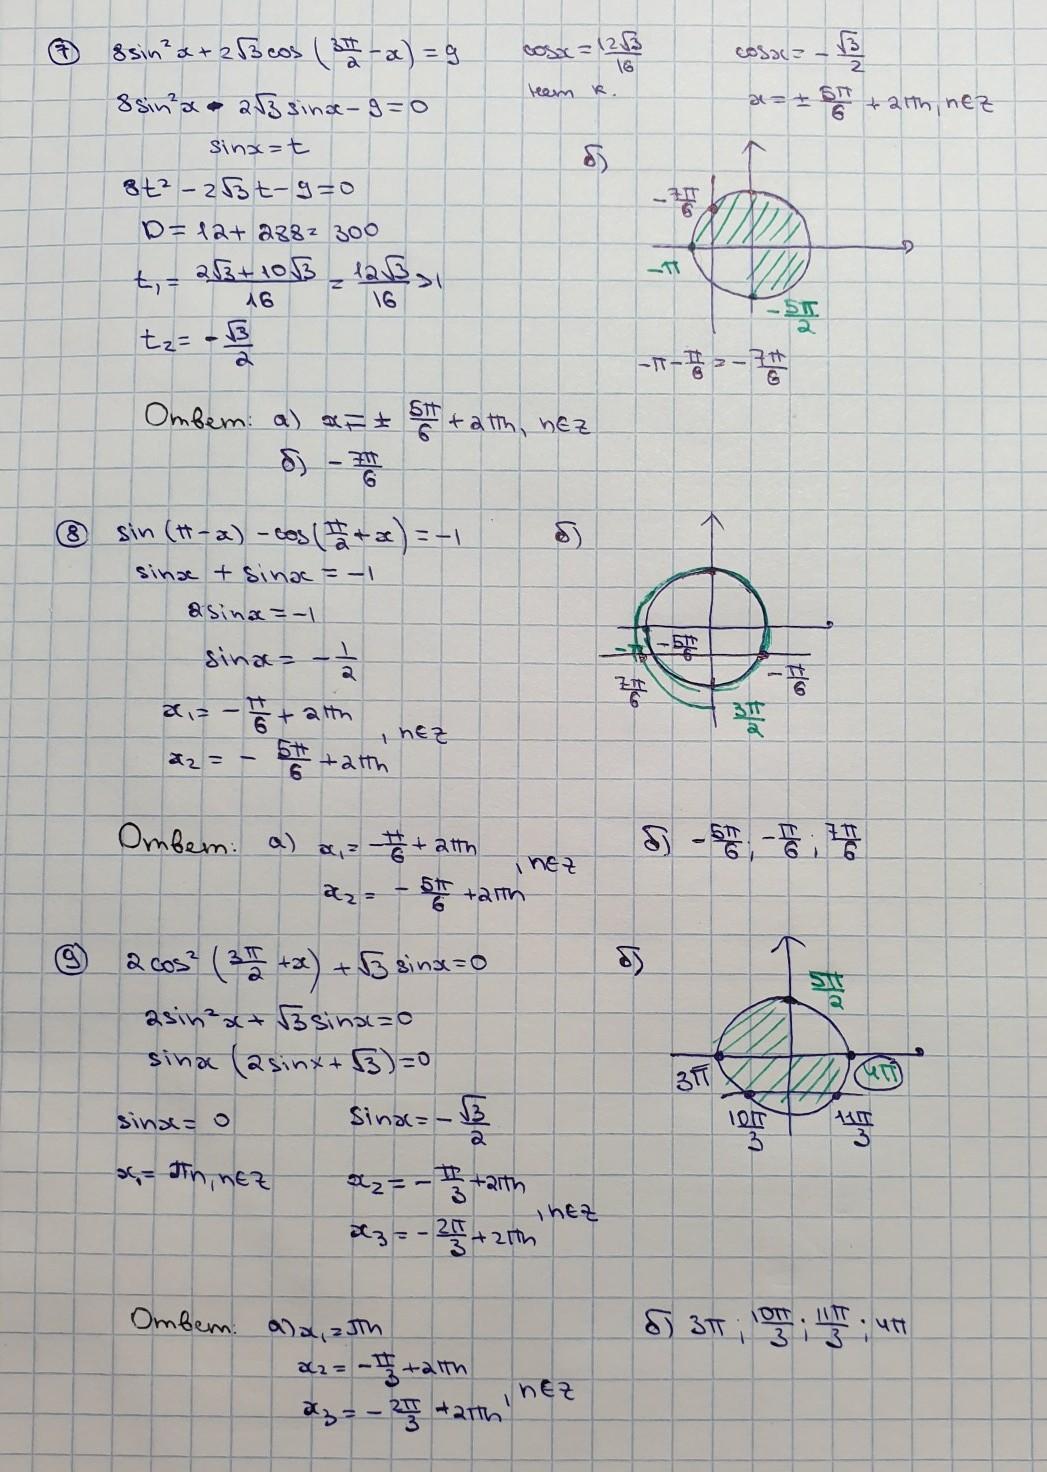 7) 8sin²x + 2√3 cos(3π/2 − x) = 9
8sin²x - 2√3 sinx − 9 = 0
sinx = t
8t² − 2√3t − 9 = 0
D = 12 + 288 = 300
t₁ = (2√3 + 10√3)/16 = 12√3/16 > 1
t₂ = −√3/2
cosx = 12√3/16
нет к.
cosx = −√3/2
x = ± 5π/6 + 2πn, n∈Z
б)
−7π/6
−π
−5π/2
−π − π/6 = −7π/6
Ответ: а) x = ± 5π/6 + 2πn, n∈Z
б) −7π/6
8) sin(π−x) − cos(π/2 + x) = −1
sinx + sinx = −1
2sinx = −1
sinx = −1/2
x₁ = −π/6 + 2πn
, n∈Z
x₂ = − 5π/6 + 2πn
б)
−π
−5π/6
7π/6
−π/6
3π/2
Ответ: а) x₁ = −π/6 + 2πn
, n∈Z
x₂ = − 5π/6 + 2πn
б) −5π/6; −π/6; 7π/6
9) 2cos²(3π/2 + x) + √3 sinx = 0
2sin²x + √3 sinx = 0
sinx (2sinx + √3) = 0
sinx = 0
x₁ = πn, n∈Z
sinx = −√3/2
x₂ = −π/3 + 2πn
, n∈Z
x₃ = −2π/3 + 2πn
б)
5π/2
3π
4π
10π/3
11π/3
Ответ: а) x₁ = πn
x₂ = −π/3 + 2πn
, n∈Z
x₃ = −2π/3 + 2πn
б) 3π; 10π/3; 11π/3; 4π